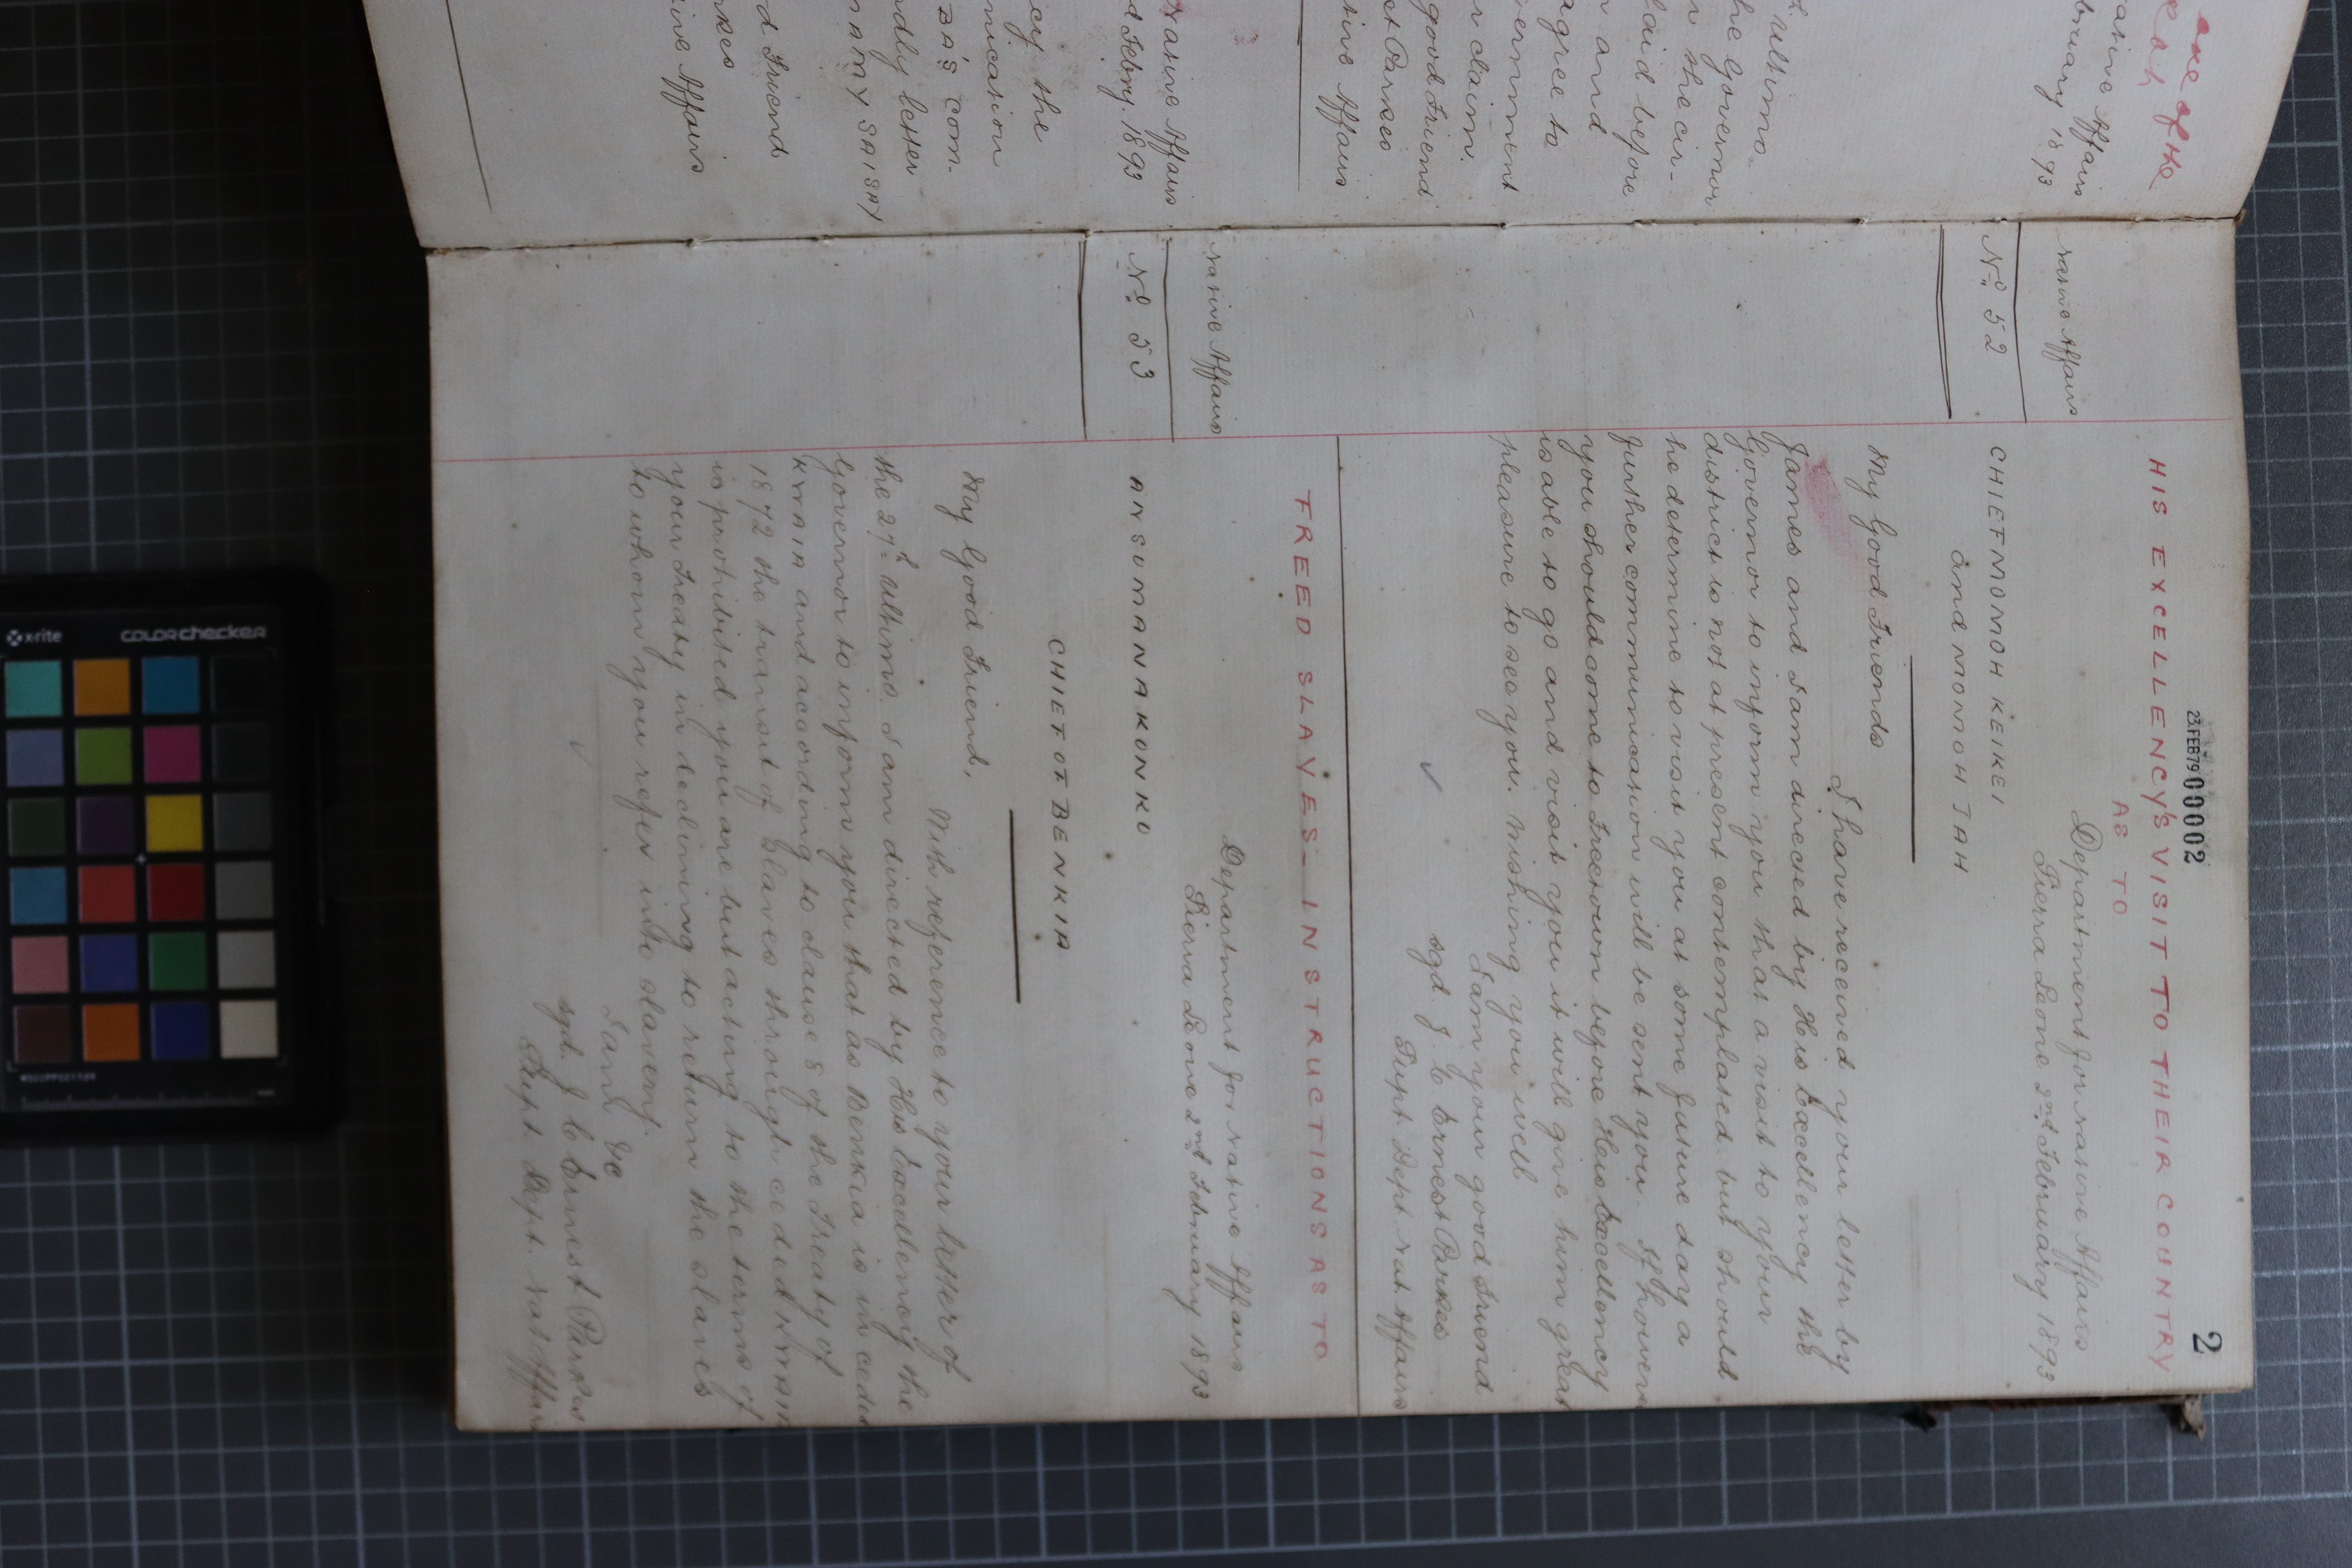 one of the
Native Affairs
February 1893
Ultimo
the Governor
the cir-
laid before
and
agree to
Government
claim.
good Friend
Est Parkes
Native Affairs
Native Affairs
d Febry. 1893
the
BA'S com-
letter
NAMY SAISAY
d Friend
rkes
tive Affairs
23.FEB79 00002
2
HIS EXCELLENCY'S VISIT TO THEIR COUNTRY
AS TO
Native Affairs
Department for Native Affairs
Sierra Leone 2nd February 1893
No. 52
CHIEF MOMOH KEIKEI
and MOMOH JAH
My Good Friends
I have received your letter by
James and I am directed by His Excellency the
Governor to inform you that a visit to your
district is not at present contemplated but should
he determine to visit you at some future day a
further communication will be sent you. If however
you should come to Freetown before His Excellency
is able to go and visit you it will give him great
pleasure to see you. Wishing you well
I am your good Friend
sgd. J. C Ernest Parkes
Supt. Dept. Nat. Affairs
FREED SLAVES_ INSTRUCTIONS AS TO
Native Affairs
Department for Native Affairs
Sierra Leone 2nd February 1893
No. 53
ANSUMANAKONKO
CHIEF OF BENKIA
My Good Friend,
With reference to your letter of
the 27th Ultimo. I am directed by His Excellency the
Governor to inform you that as Benkia is in ceded
KWAIA and according to clause 8 of the Treaty of
1872 the transit of Slaves through ceded KWAIA
is prohibited you are but acting to the terms of
your Treaty in declining to return the slaves
to whom you refer into slavery.
I am &c
sgd. J. C Ernest Parkes
Supt. Dept. Nat Affairs
x-rite
colorchecker